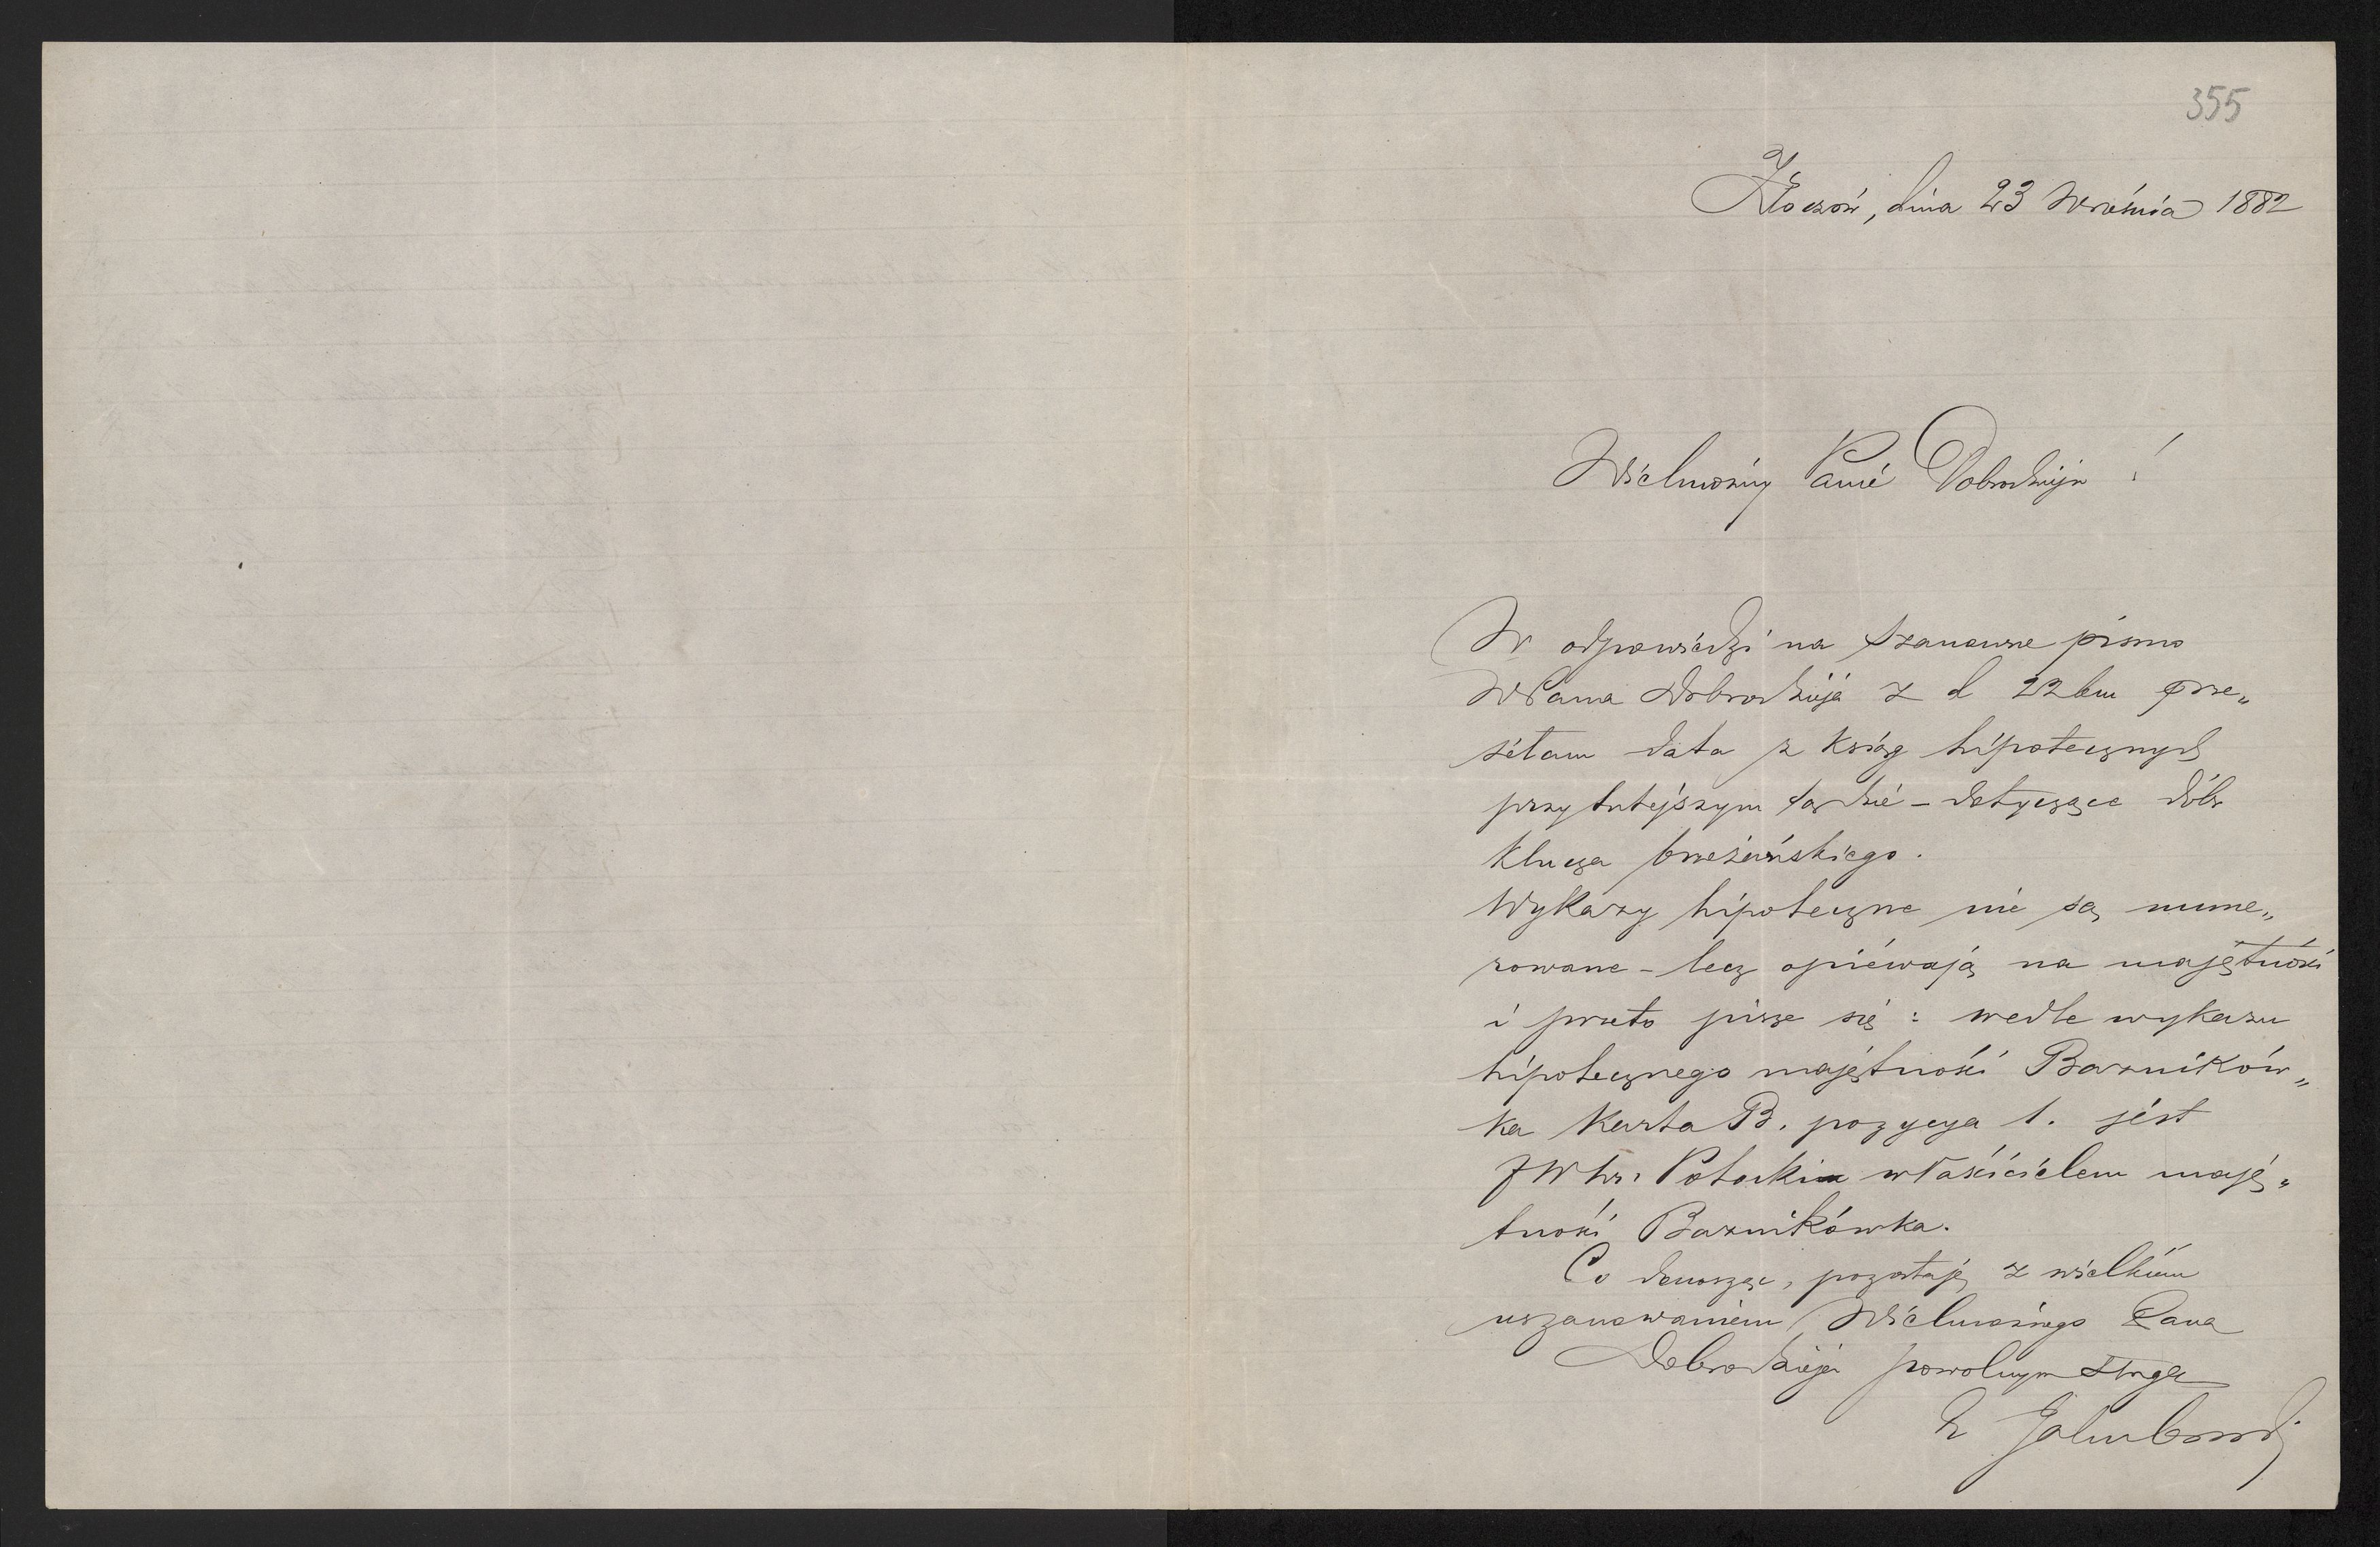 355
Złoczów, dnia 23 Września 1882
Wielmożny Panie Dobrodzieju!
W odpowiedzi na Szanowne pismo
WPana Dobrodzieja z d 22 bm prze„
siłam data z ksiąg hipotecznych
przy tutejszym sądzie – dotyczące dóbr
Klucza brzeżańskiego.
Wykazy hipoteczne nie są nume„
rowane – lecz opiewają na majętności
i przeto pisze się: wedle wykazu
hipotecznego majętności Bazników„
ka Karta B. pozycya 1. jest
JW hr. Potocki właścicielem mają„
tności Baznikówka.
Co donosząc, pozostaję z wielkiem
uszanowaniem Wielmożnego Pana
Dobrodzieja powolnym sługą